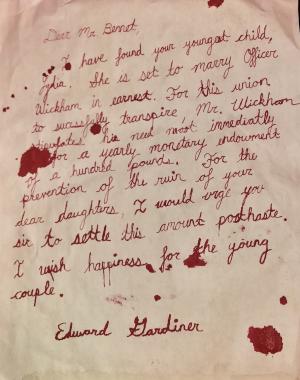 Dear Mr. Bennet,
I have found your youngest child,
Lydia. She is set to marry Officer
Wickham in earnest. For this union
to sucessfully transpire, Mr. Wickham
stipulates his need most immediatly
for a yearly monetary endowment
of a hundred pounds. For the
prevention of the ruin of your
dear daughters, I would urge you
sir to settle this amount posthaste.
I wish happiness for the young
couple.
Edward Gardiner